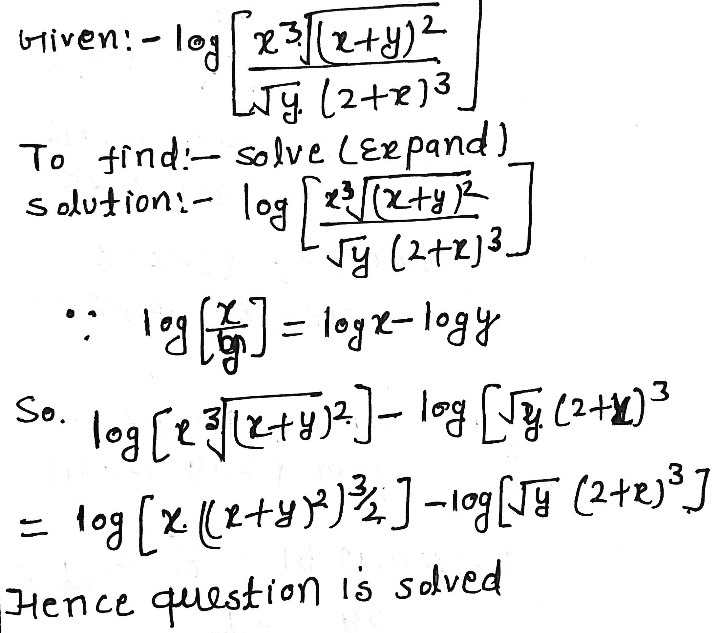 Given:- log [ x ∛(x+y)² / √y. (2+x)³ ]
To find:- solve (Expand)
solution:- log [ x ∛(x+y)² / √y (2+x)³ ]
∵ log [x/y] = logx - logy
So. log [x ∛(x+y)².] - log [√y. (2+x)³
= log [x. ((x+y)²)^3/2 ] - log [√y (2+x)³]
Hence question is solved